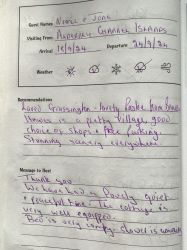 Guest Names
Visiting From Alderney Channel Islands
Arrival 18/9/24 Departure 24/9/24
Weather
Recommendations
Loved Grassington - lovely
Hawes is a pretty village, good
choice of shops + free parking.
Stunning scenery everywhere
Message to Host
Thank you
We have had a lovely quiet
+ peaceful time. The cottage is
very well equipped.
Bed is very comfy, shower is